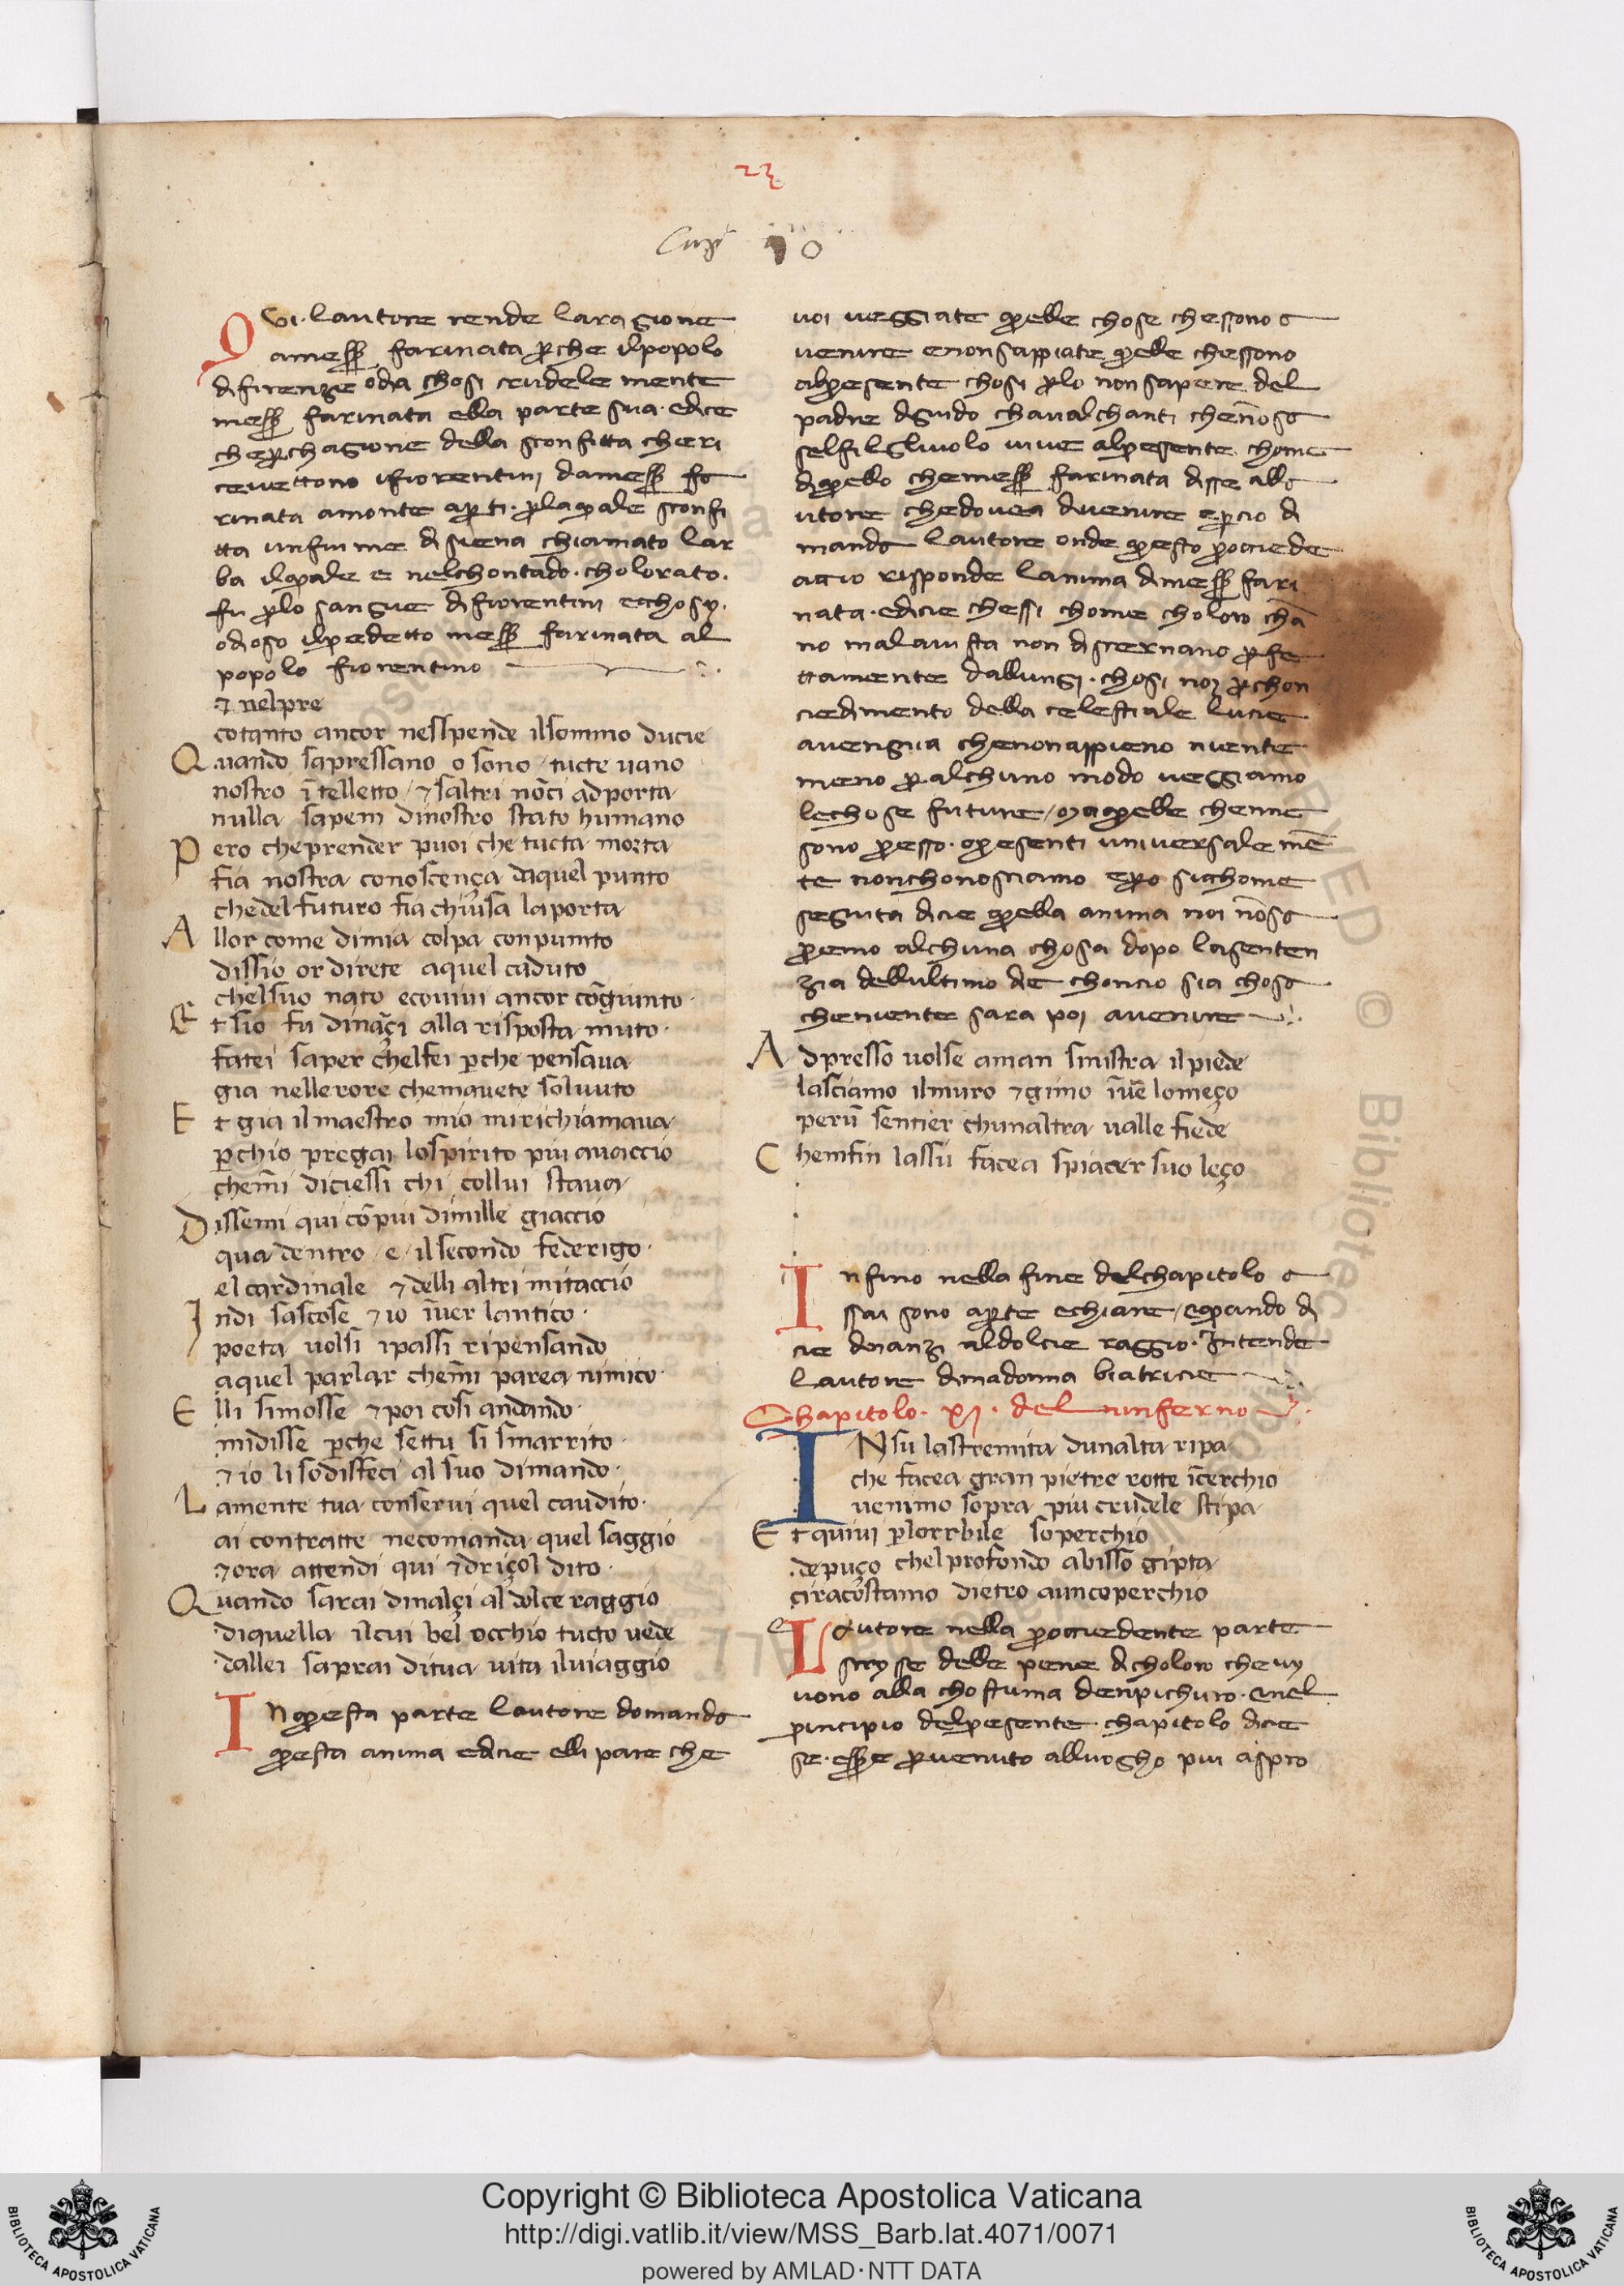 23
10
Qui lautore rende laragione
amess farinata perche ilpopolo
difirenze odia chosi crudele mente
mess farinata ella parte sua edice
cheperchagione della sconfitta cheri
cevettono ifiorentini damess fa
rinata amonte aperti perlaquale sconfi
tta unfiume di siena chiamato lar
ba ilquale e nelchontado cholorato
fu perlo sangue difiorentini ecchosy
odioso ilpedetto mess farinata al
popolo fiorentino
⁊ nelpre
cotanto ancor nesspende ilsommo ducie
Quando sapressano o sono tucte vano
nostro ītelletto ⁊ saltri nōci adporta
nulla sapem dinostro stato humano
Pero cheprender puoi che tucta morta
fia nostra conoscença daquel punto
chedelfuturo fia chiusa laporta
Allor come dimia colpa conpunto
dissio or direte aquel caduto
chelsuo nato ecovivi ancor cōgiunto
Et sio fu dināçi alla risposta muto
fatei saper chelfei pche pensava
gia nellerore chemavete soluuto
Et gia ilmaestro mio mirichiamava
pchio pregai lospirito piu avaccio
chemi diciessi chi collui stava
Dissemi qui cōpiu dimille giaccio
qua dentro e ilsecondo federigo
el cardinale ⁊ delli altri mitaccio
Indi sascose ⁊ io īver lantico
poeta volsi ipassi ripensando
aquel parlar chemi parea nimico
Elli simosse ⁊ poi cosi andando
midisse pche settu si smarrito
⁊ io li sodisfeci al suo dimando
Lamente tua conservi quel caudito
ai contratte necomanda quel saggio
⁊ ora attendi qui ⁊ driçol dito
Quando sarai dinalçi al dolce raggio
diquella ilcui bel occhio tucto vede
dallei saprai ditua vita ilviaggio
In questa parte lautore domanda
questa anima edicie elli pare che
voi veggiate quelle chose chessono a
venire enonsappiate quelle chessono
alpresente chosi perlo nonsapere del
padre diguido chavalchanti chenōsa
selfilglivolo vive alpressente chome
diquello chemess farinata disse alla
utore chedovea divenire epercio di
manda lautore onde questo prociede
accio risponde lanima dimess fari
nata edicie chessi chome choloro chā
no malavista non discernano perfe
ttamente dallungi chosi noi perchon
ciedimento della celestiale lucie
avengnia chenonappieno niente
meno per alchuno modo veggiamo
lechose future ma quelle chenne
sono presso opresenti universalemē
te nonchonosciamo epero sicchome
seguita dicie quella anima noi nōsa
premo alchuna chosa dopo lasenten
zia dellultimo die choncio sia chosa
cheniente sara poi avenire
Adpresso volse aman sinistra ilpiede
lasciamo ilmuro ⁊ gimo īve lomeço
perū sentier chunaltra valle fiede
Chemfin lassu facea spiacer suo leço
Infino nella fine delchapitolo a
ssai sono aperte echiare equando di
cie dinanzi aldolcie raggio Intende
lautore dimadonna biatricie
Chapitolo XI del ninferno
INsu lastremita dunalta ripa
che facea gran pietre rotte īcerchio
venimo sopra piu crudele stipa
Et quivi plorrbile soperchio
depuço chelprofondo abisso gipta
ciracostamo dietro auncoperchio
Lautore nella prociedente parte
scrysse delle pene dicholoro che vy
vono alla chostuma denpichuro enel
principio delpresente chapitolo dicie
se essere pervenuto alluogho piu aspro
Copyright © Biblioteca Apostolica Vaticana
http://digi.vatlib.it/view/MSS_Barb.lat.4071/0071
powered by AMLAD·NTT DATA
BIBLIOTECA APOSTOLICA VATICANA
BIBLIOTECA APOSTOLICA VATICANA